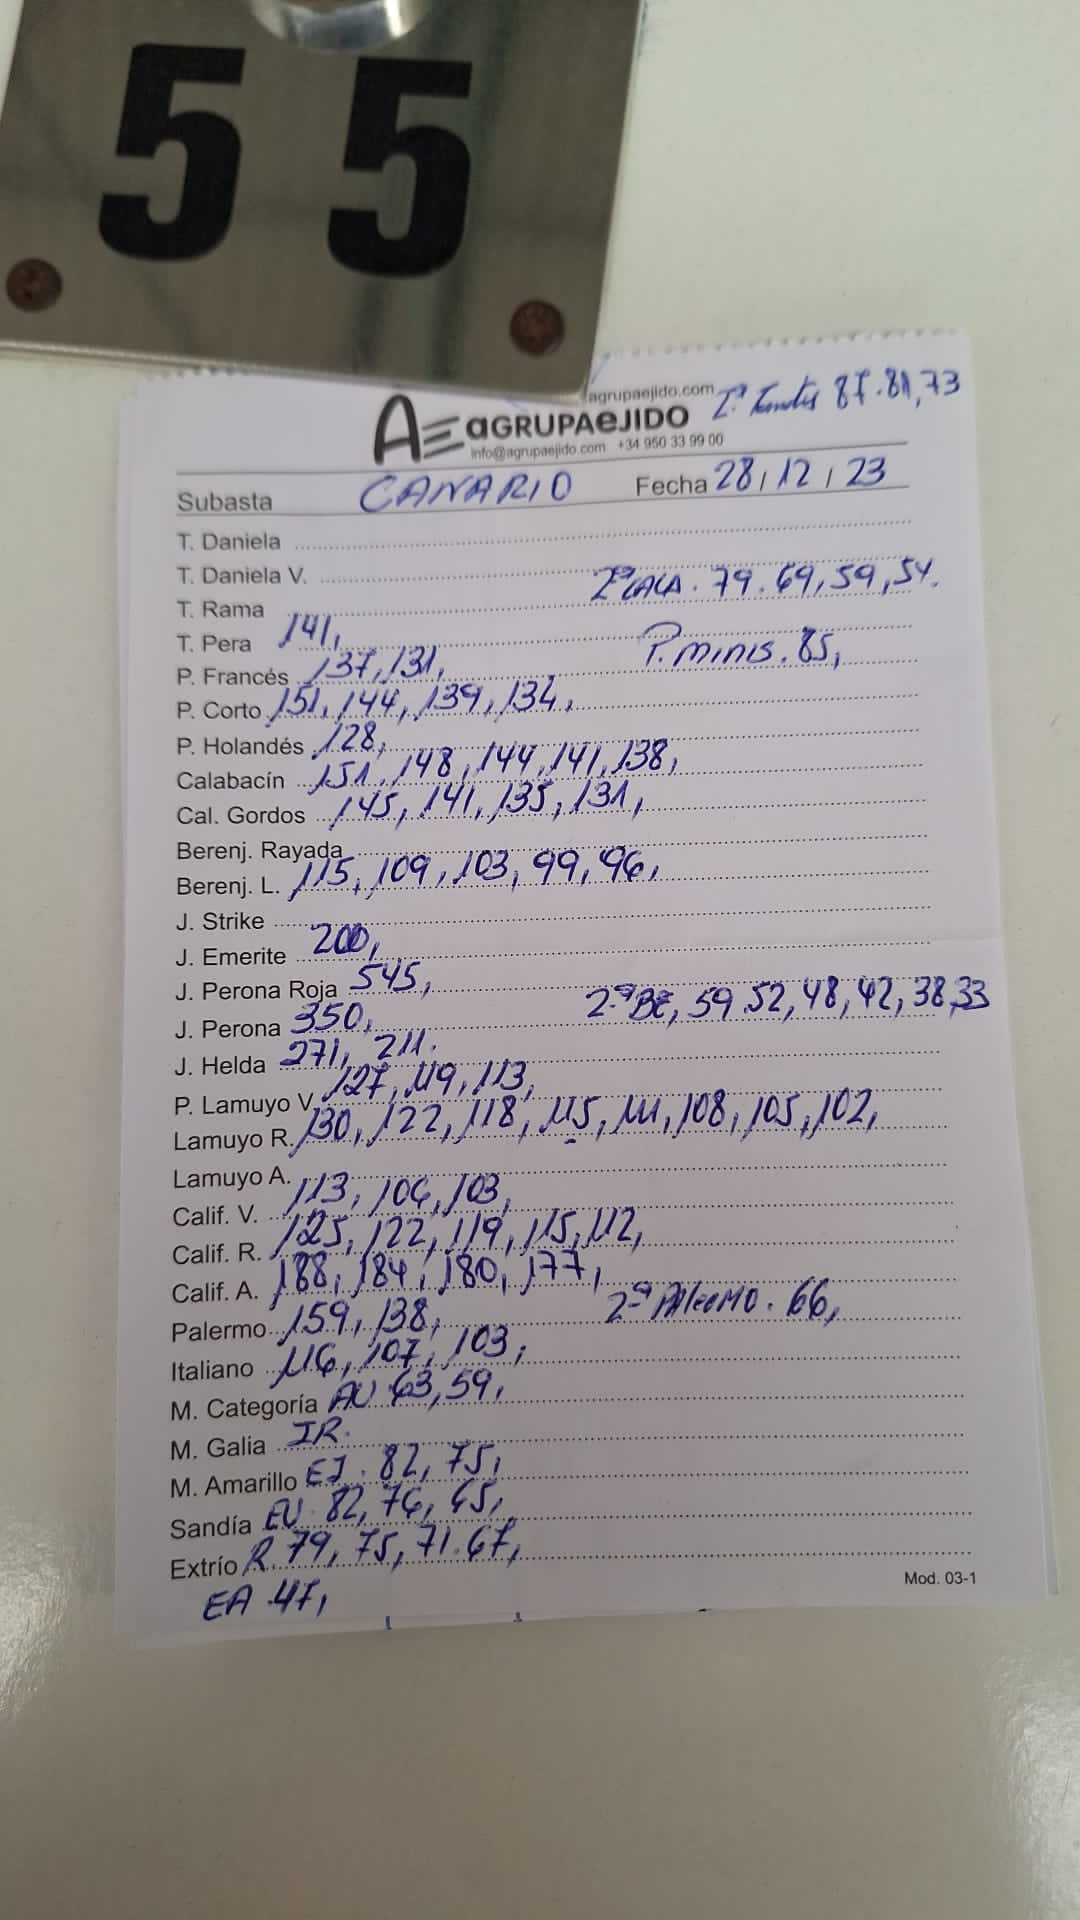 55
agrupaejido.com 2ª Tomates 87.81,73
AE aGRUPAeJIDO
info@agrupaejido.com +34 950 33 99 00
Subasta CANARIO Fecha 28/12/23
T. Daniela
T. Daniela V.
2ª CALA. 79.69,59,54.
T. Rama
T. Pera 141,
P. minis. 85,
P. Francés 137,131,
P. Corto 151,144,139,134,
P. Holandés 128,
Calabacín 151,148,144,141,138,
Cal. Gordos 145,141,135,131,
Berenj. Rayada
Berenj. L. 115,109,103,99,96,
J. Strike
J. Emerite 200,
J. Perona Roja 545,
2ª BE, 59.52,48,42,38,33
J. Perona 350,
J. Helda 271, 211.
P. Lamuyo V. 127,119,113,
Lamuyo R. 130,122,118,115,111,108,105,102,
Lamuyo A.
Calif. V. 113,106,103,
Calif. R. 125,122,119,115,112,
Calif. A. 188,184,180,177,
2ª PALERMO. 66,
Palermo 159,138,
Italiano 116,107,103,
M. Categoría AU 63,59,
M. Galia IR.
M. Amarillo EJ. 82,75,
Sandía EU. 82,76,65,
Extrío R. 79,75,71.67,
EA 47,
Mod. 03-1